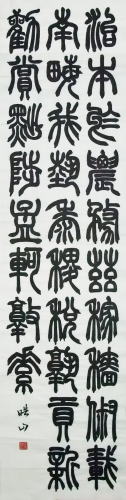 治本於農務茲稼穡俶載
南畝我藝黍稷稅熟貢新
勸賞黜陟孟軻敦素